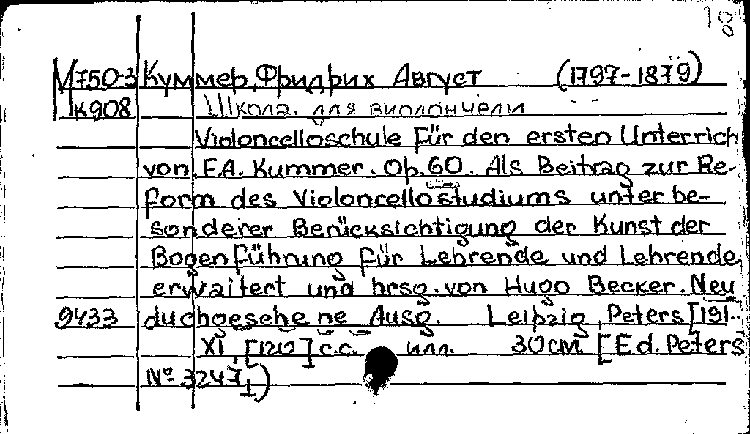 18
М750-3 Куммер, Фридрих Август (1797-1879)
К908 Школа для виолончели
Violoncelloschule für den ersten Unterrich
von F.A. Kummer. Op. 60. Als Beitrag zur Re-
form des Violoncellostudiums unter be-
sonderer Berücksichtigung der Kunst der
Bogenführung für Lehrende und Lehrende,
erwaitert und hrsg. von Hugo Becker. Neu
9433 duchgesehene Ausg. Leipzig, Peters [191-
XI, [120] с.с. илл. 30см. [Ed. Peters
№ 3247])